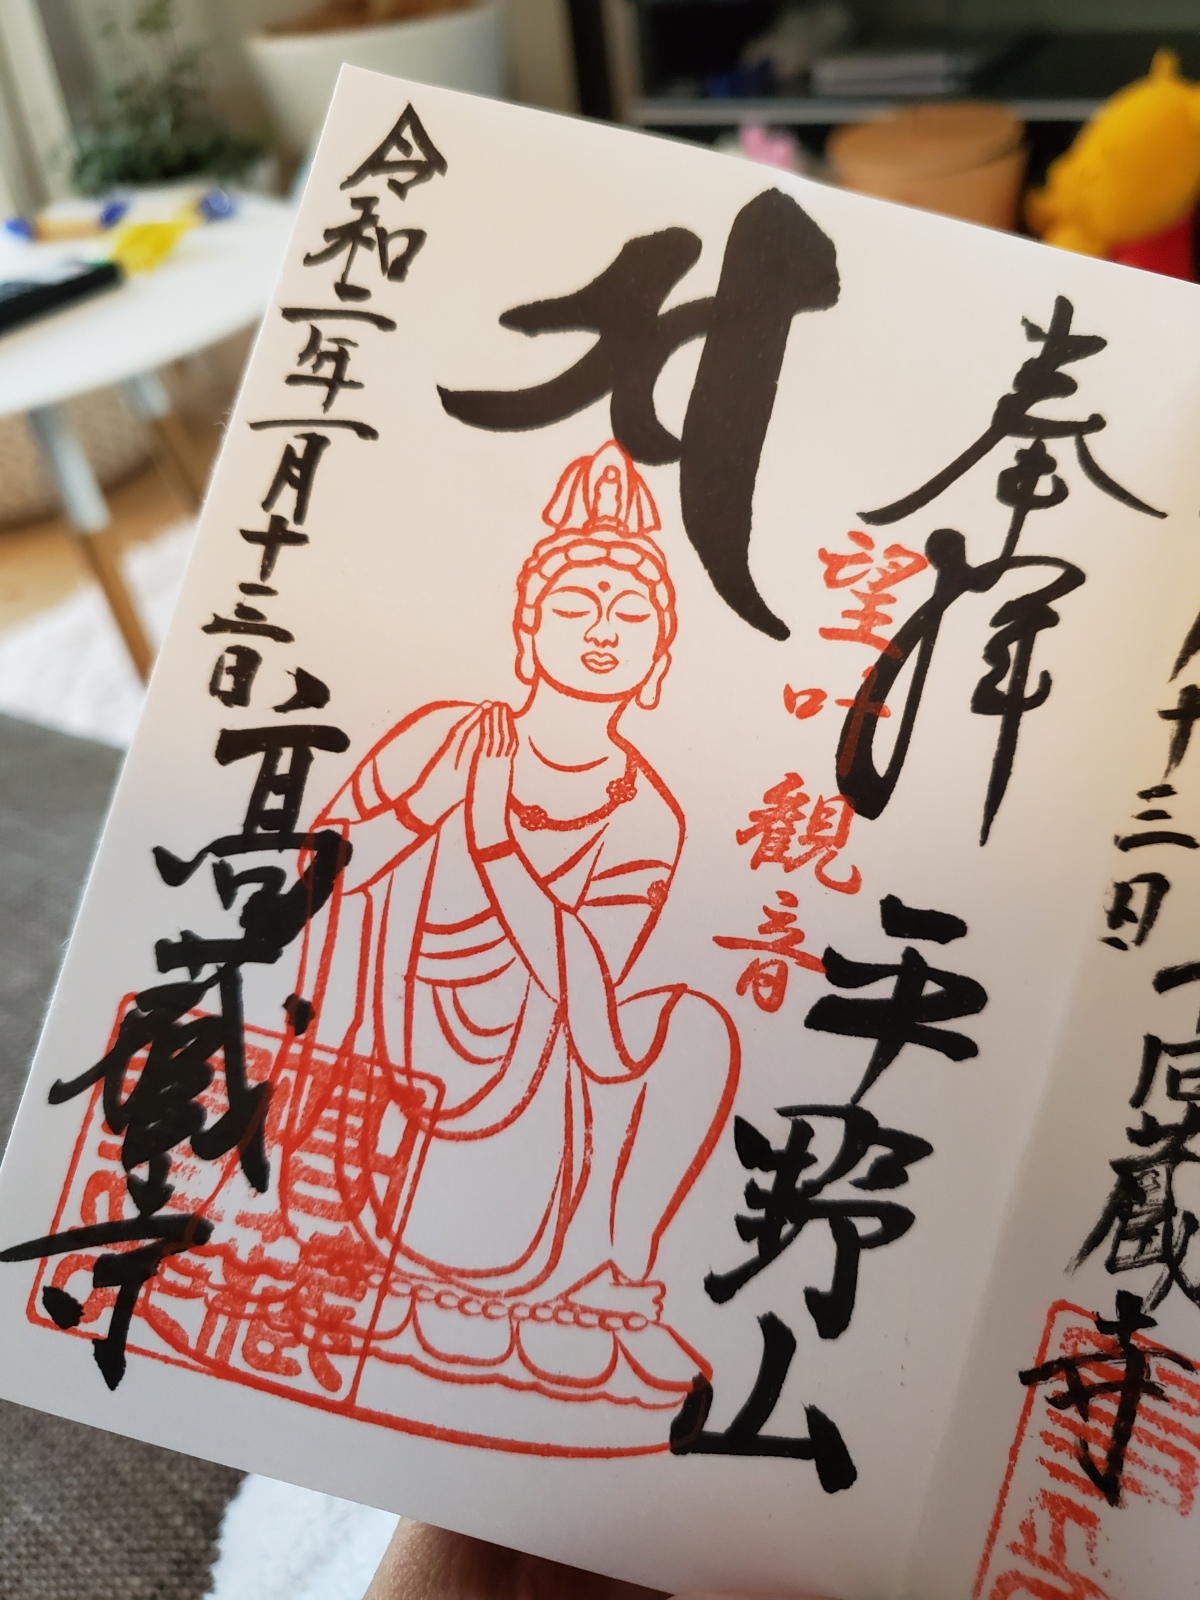 十三日
高蔵寺
奉拝
平野山
望叶観音
令和二年一月十三日
高蔵寺